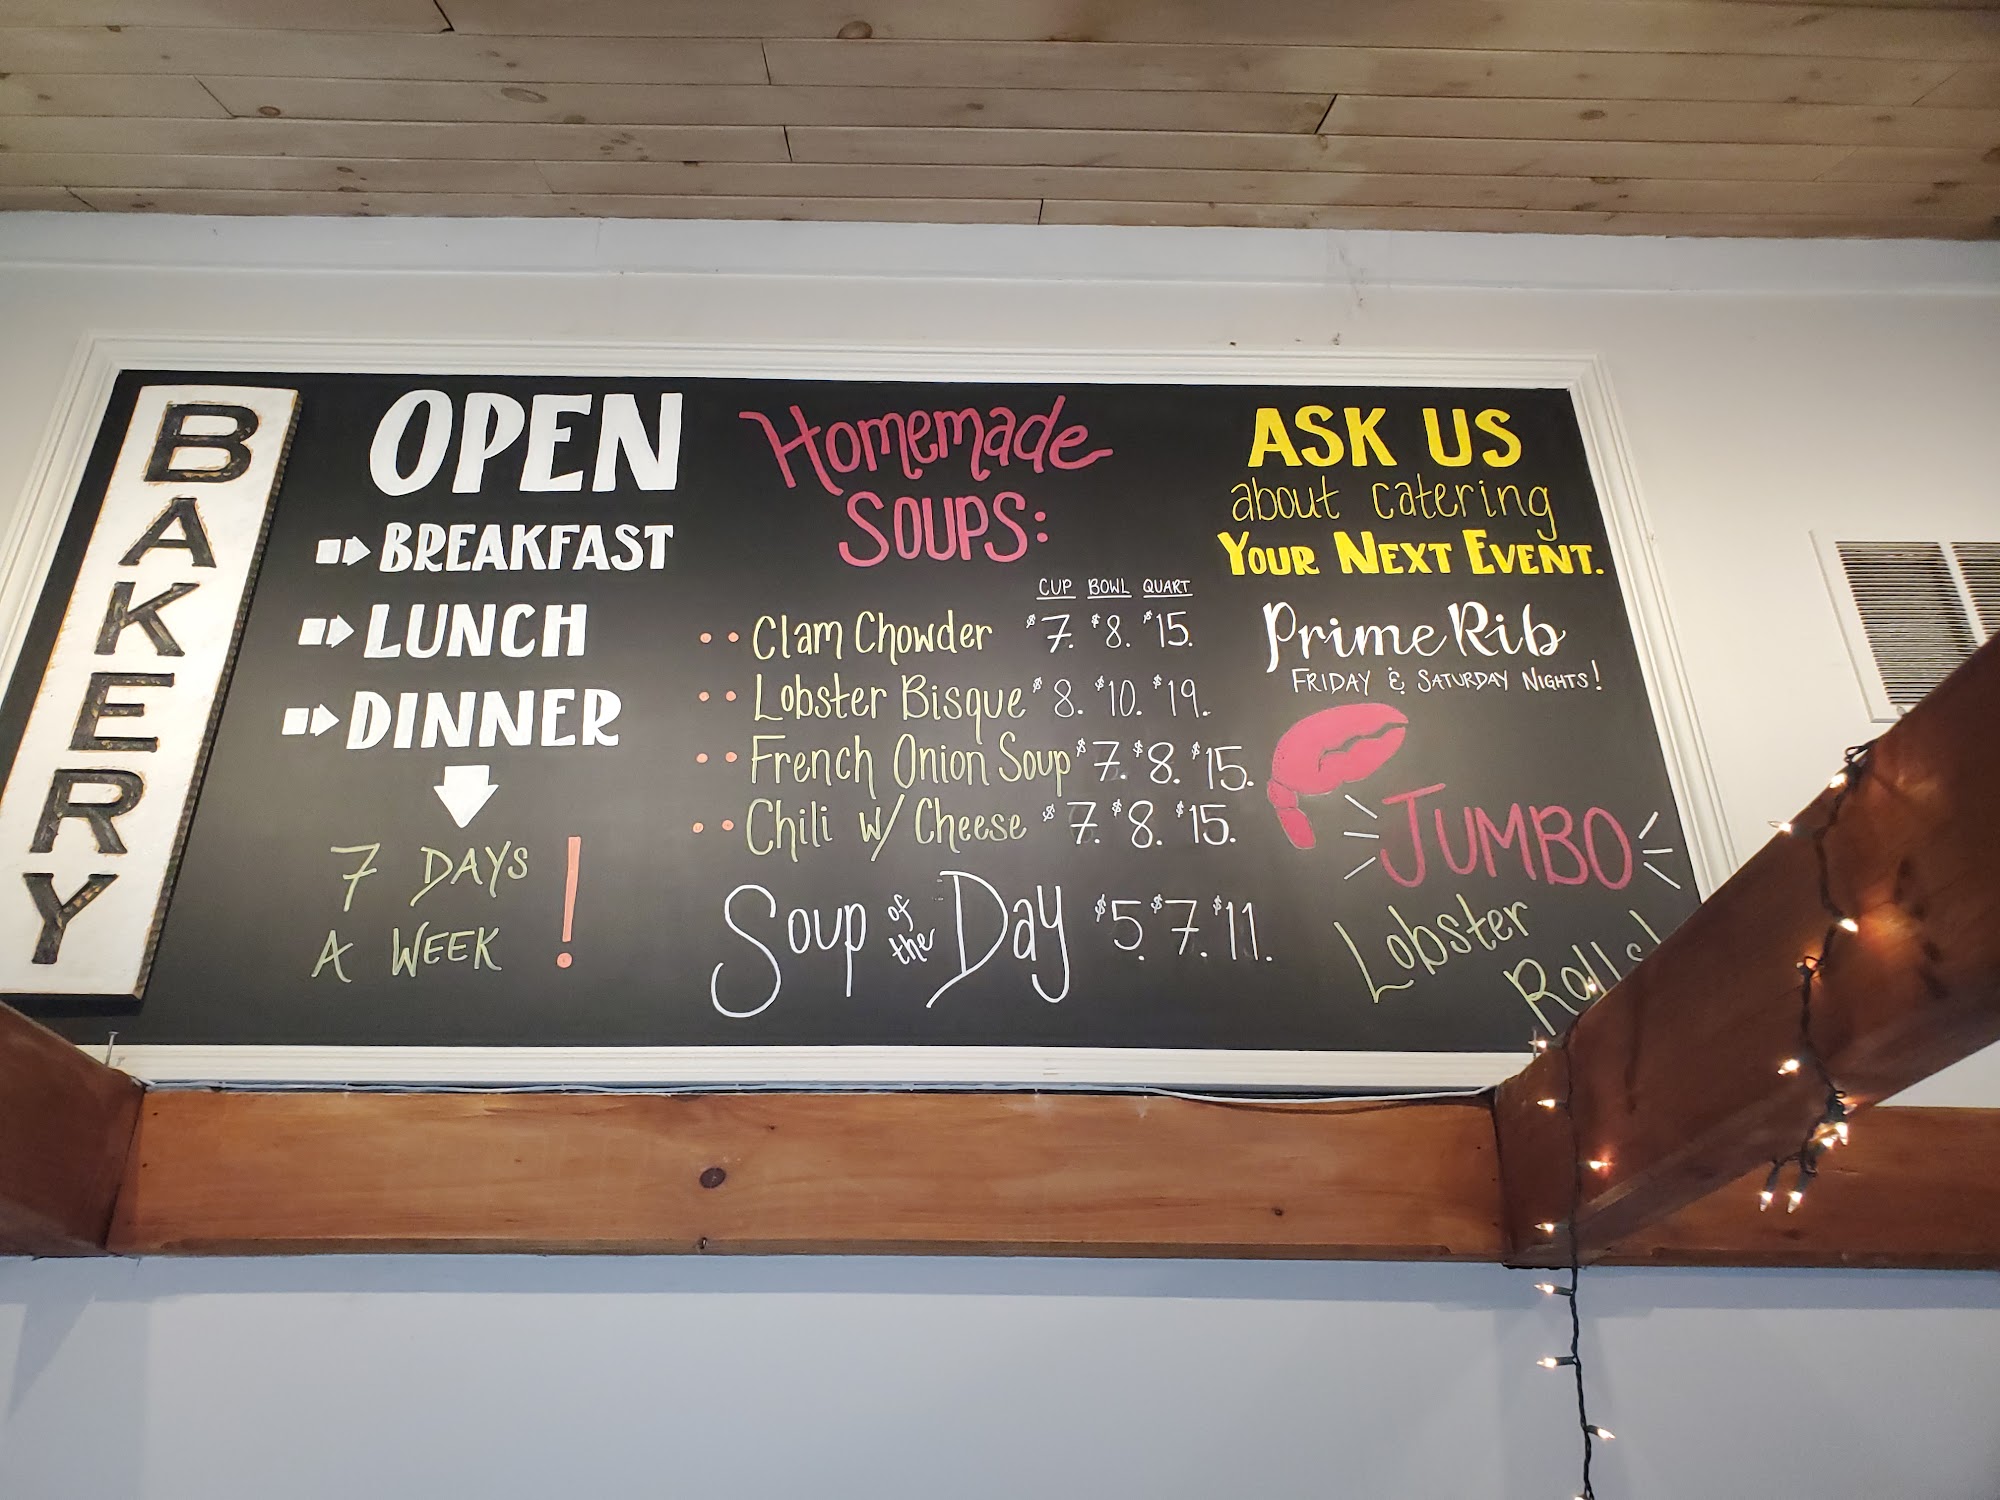 BAKERY
OPEN
BREAKFAST
LUNCH
DINNER
7 DAYS
A WEEK !
Homemade
SOUPS:
CUP BOWL QUART
Clam Chowder $7. $8. $15.
Lobster Bisque $8. $10. $19.
French Onion Soup $7. $8. $15.
Chili w/ Cheese $7. $8. $15.
Soup of the Day $5. $7. $11.
ASK US
about catering
YOUR NEXT EVENT.
Prime Rib
FRIDAY & SATURDAY NIGHTS!
JUMBO
Lobster
Rolls!